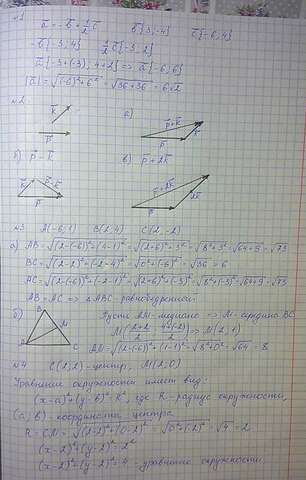 №1
a⃗ = -b⃗ + ½c⃗  b⃗{3;-4}  c⃗{-6;4}
-b⃗{-3;4}  ½c⃗{-3;2}
a⃗{-3+(-3); 4+2} => a⃗{-6;6}
|a⃗| = √((-6)²+6²) = √(36+36) = 6√2
№2
k⃗
p⃗
а)
p⃗+k⃗
k⃗
p⃗
б) p⃗-k⃗
в) p⃗+2k⃗
k⃗
p⃗-k⃗
p⃗
p⃗+2k⃗
2k⃗
p⃗
№3 A(-6;1) B(2;4) C(2;-2)
а) AB = √((2-(-6))²+(4-1)²) = √((2+6)²+3²) = √(8²+3²) = √(64+9) = √73
BC = √((2-2)²+(-2-4)²) = √(0²+(-6)²) = √36 = 6
AC = √((2-(-6))²+(-2-1)²) = √((2+6)²+(-3)²) = √(8²+(-3)²) = √(64+9) = √73
AB = AC => △ABC - равнобедренный
б)
B
Пусть AM - медиана => M - середина BC
M
M((2+2)/2; (4+(-2))/2) => M(2;1)
A
C
AM = √((2-(-6))²+(1-1)²) = √(8²+0²) = √64 = 8
№4 C(2;2) - центр, M(2;0)
Уравнение окружности имеет вид:
(x-a)²+(y-b)²=R², где R - радиус окружности,
(a;b) - координаты центра
R = CM = √((2-2)²+(0-2)²) = √(0²+(-2)²) = √4 = 2
(x-2)²+(y-2)²=2²
(x-2)²+(y-2)²=4 - уравнение окружности